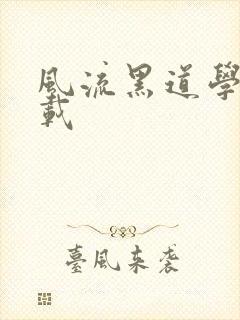 風流黑道學
載
臺風來襲